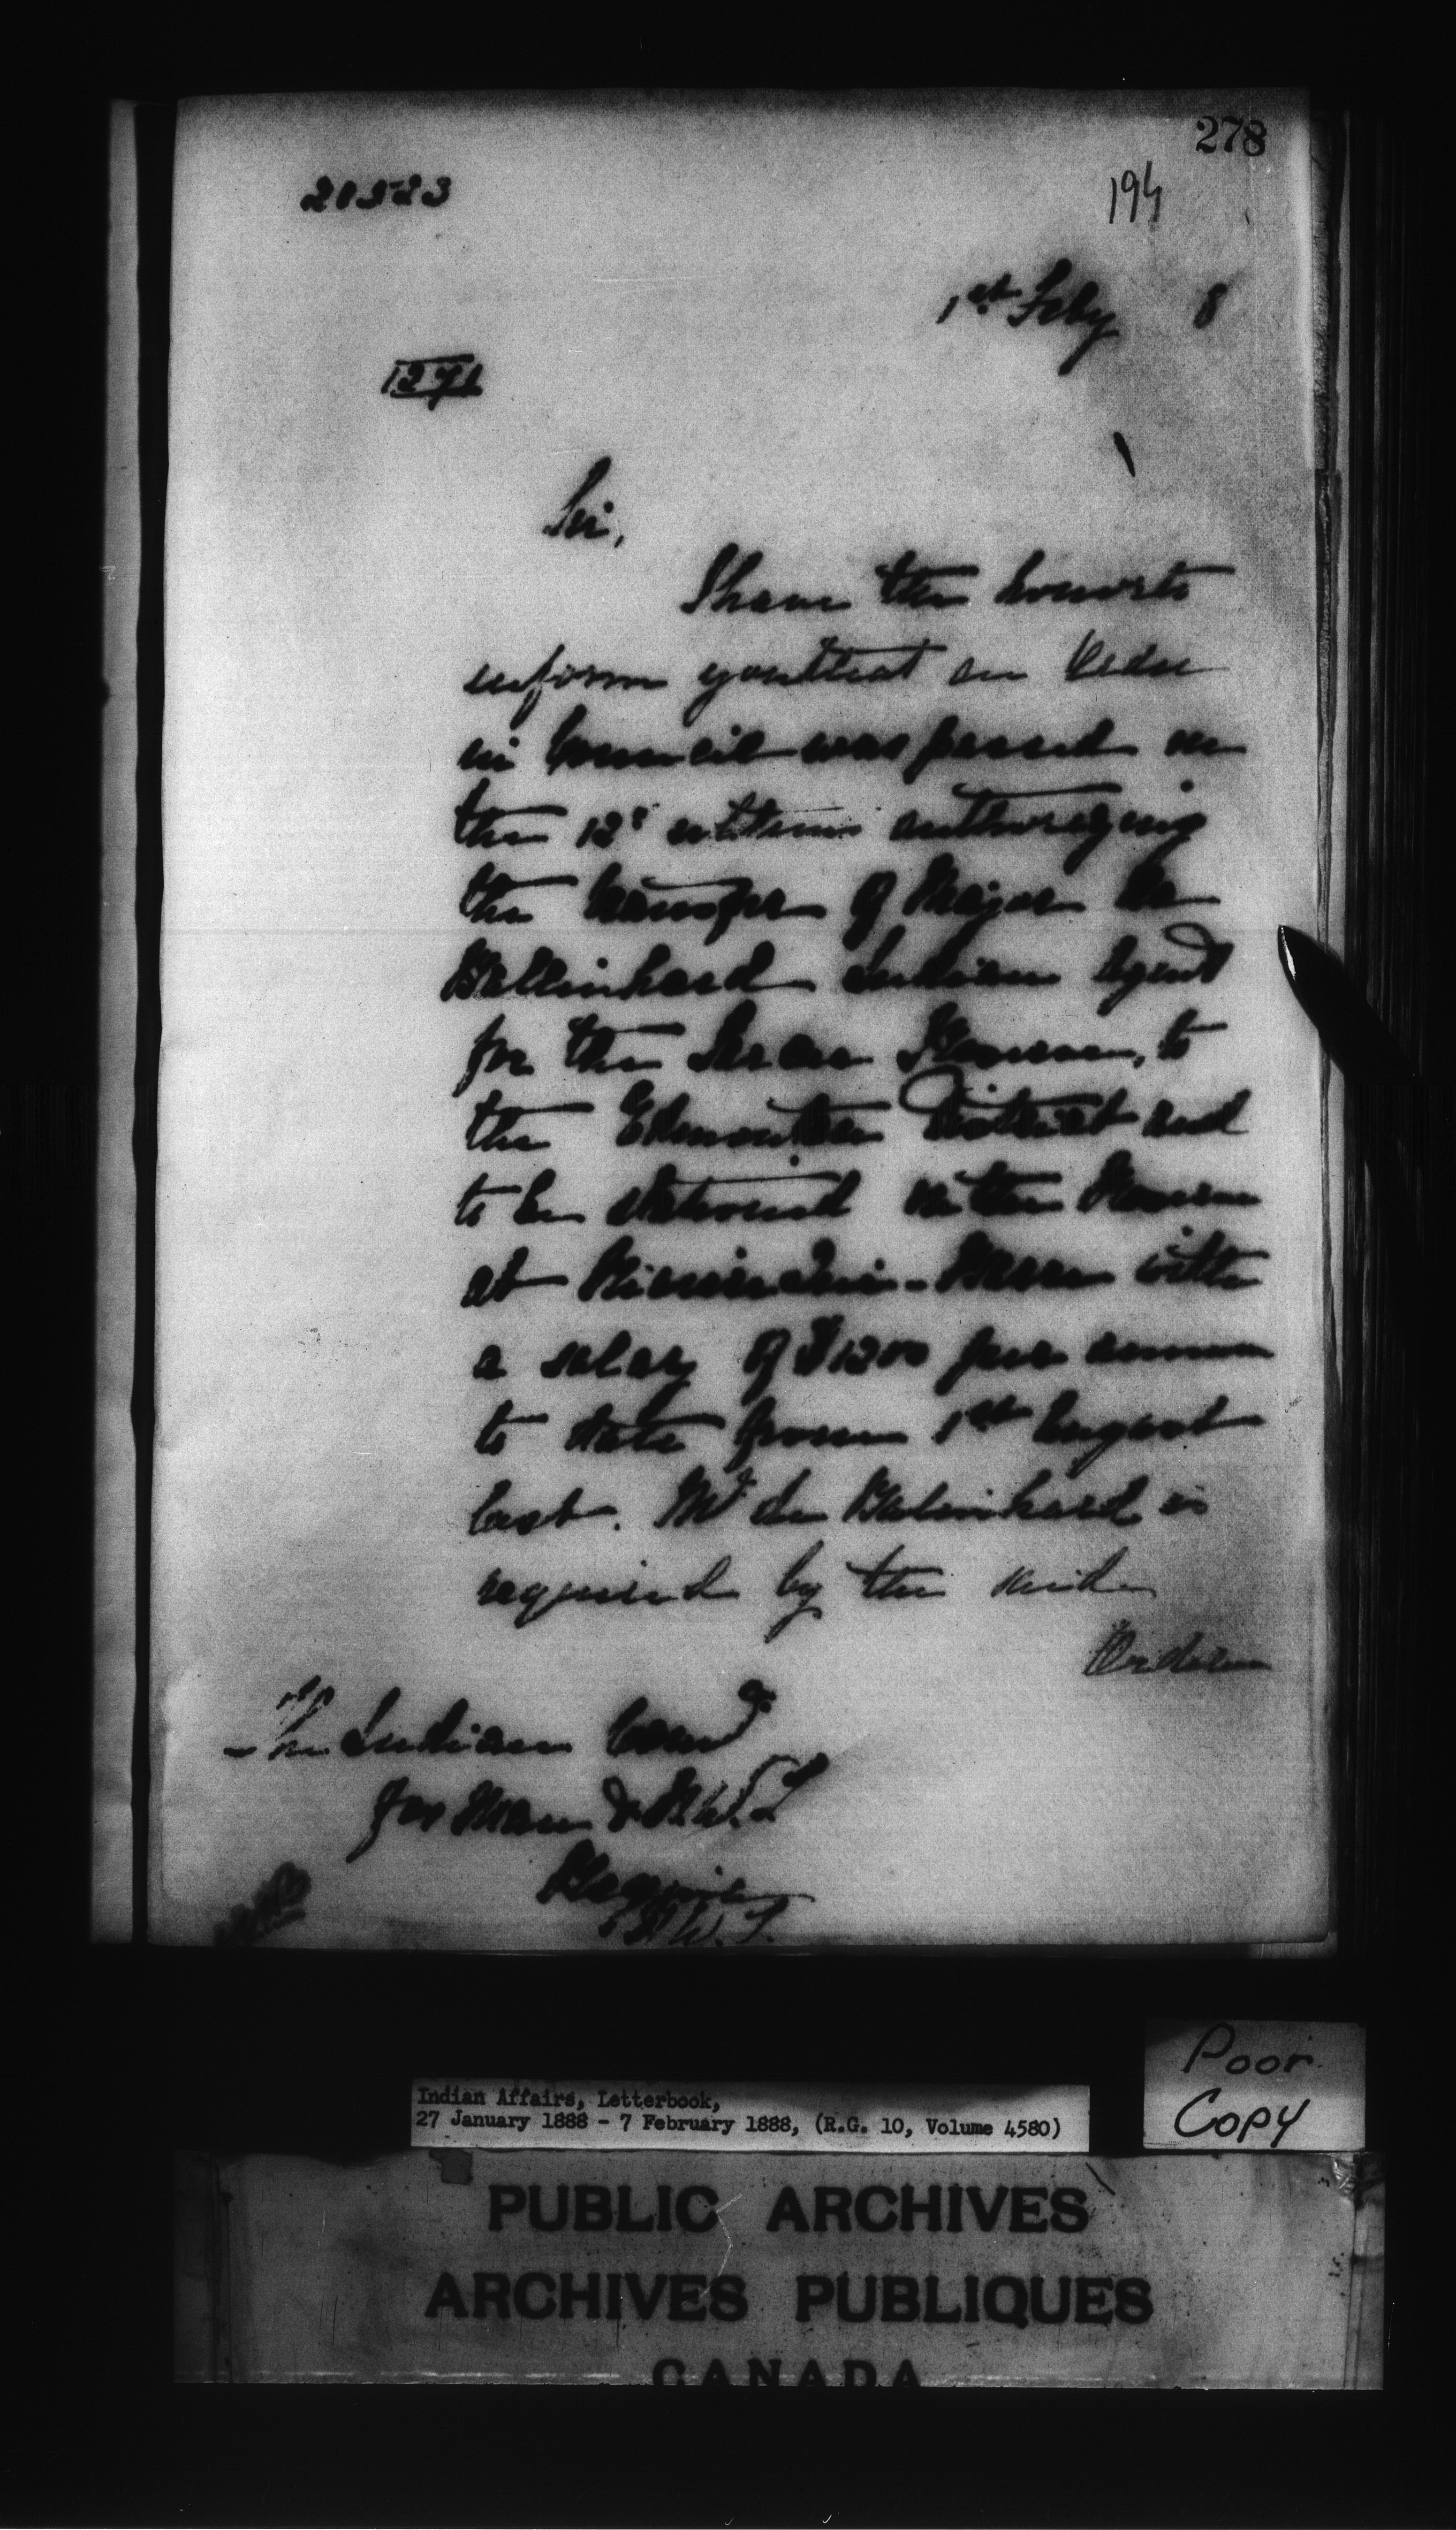 278
194
20523
1st Feby 8
1271
Sir,
I have the honor to
inform you that an Order
in Council was passed on
the 12th ultimo authorizing
the transfer of Major de
Ballinhard Indian Agent
for the Sarcee Reserve, to
the Edmonton District and
to be stationed on the Reserve
at with
a salary of $1200 per annum
to date from 1st August
last. Mr de Balinhard is
required by the said
Order in
The Indian Comr
for Man & N.W.T
Regina
N.W.T.
Poor
Copy
Indian Affairs, Letterbook,
27 January 1888 - 7 February 1888, (R.G. 10, Volume 4580)
PUBLIC ARCHIVES
ARCHIVES PUBLIQUES
CANADA